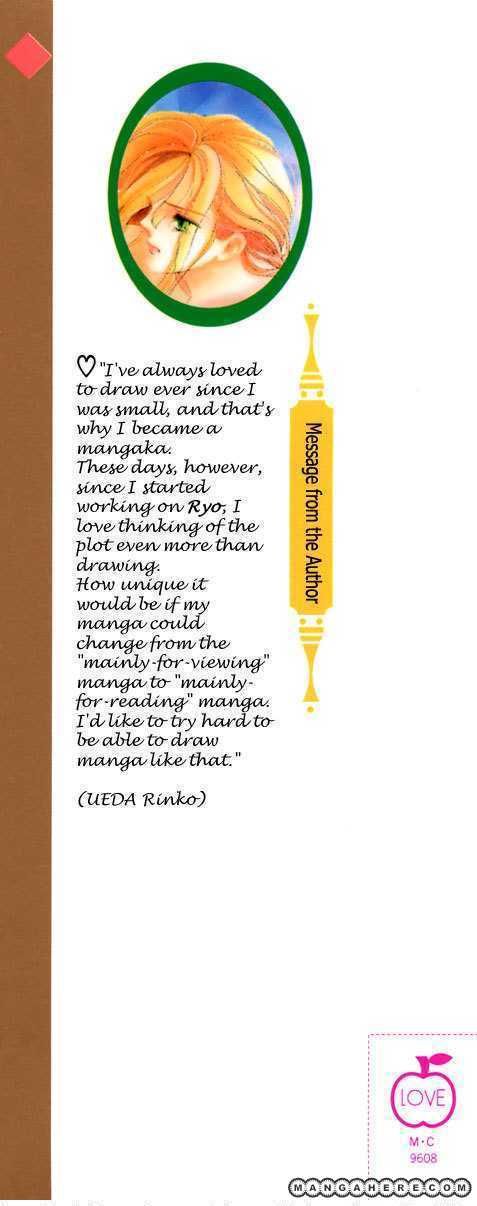 ♡"I've always loved
to draw ever since I
was small, and that's
why I became a
mangaka.
These days, however,
since I started
working on Ryo, I
love thinking of the
plot even more than
drawing.
How unique it
would be if my
manga could
change from the
"mainly-for-viewing"
manga to "mainly-
for-reading" manga.
I'd like to try hard to
be able to draw
manga like that."
(UEDA Rinko)
Message from the Author
LOVE
M·C
9608
MANGAHERE.COM